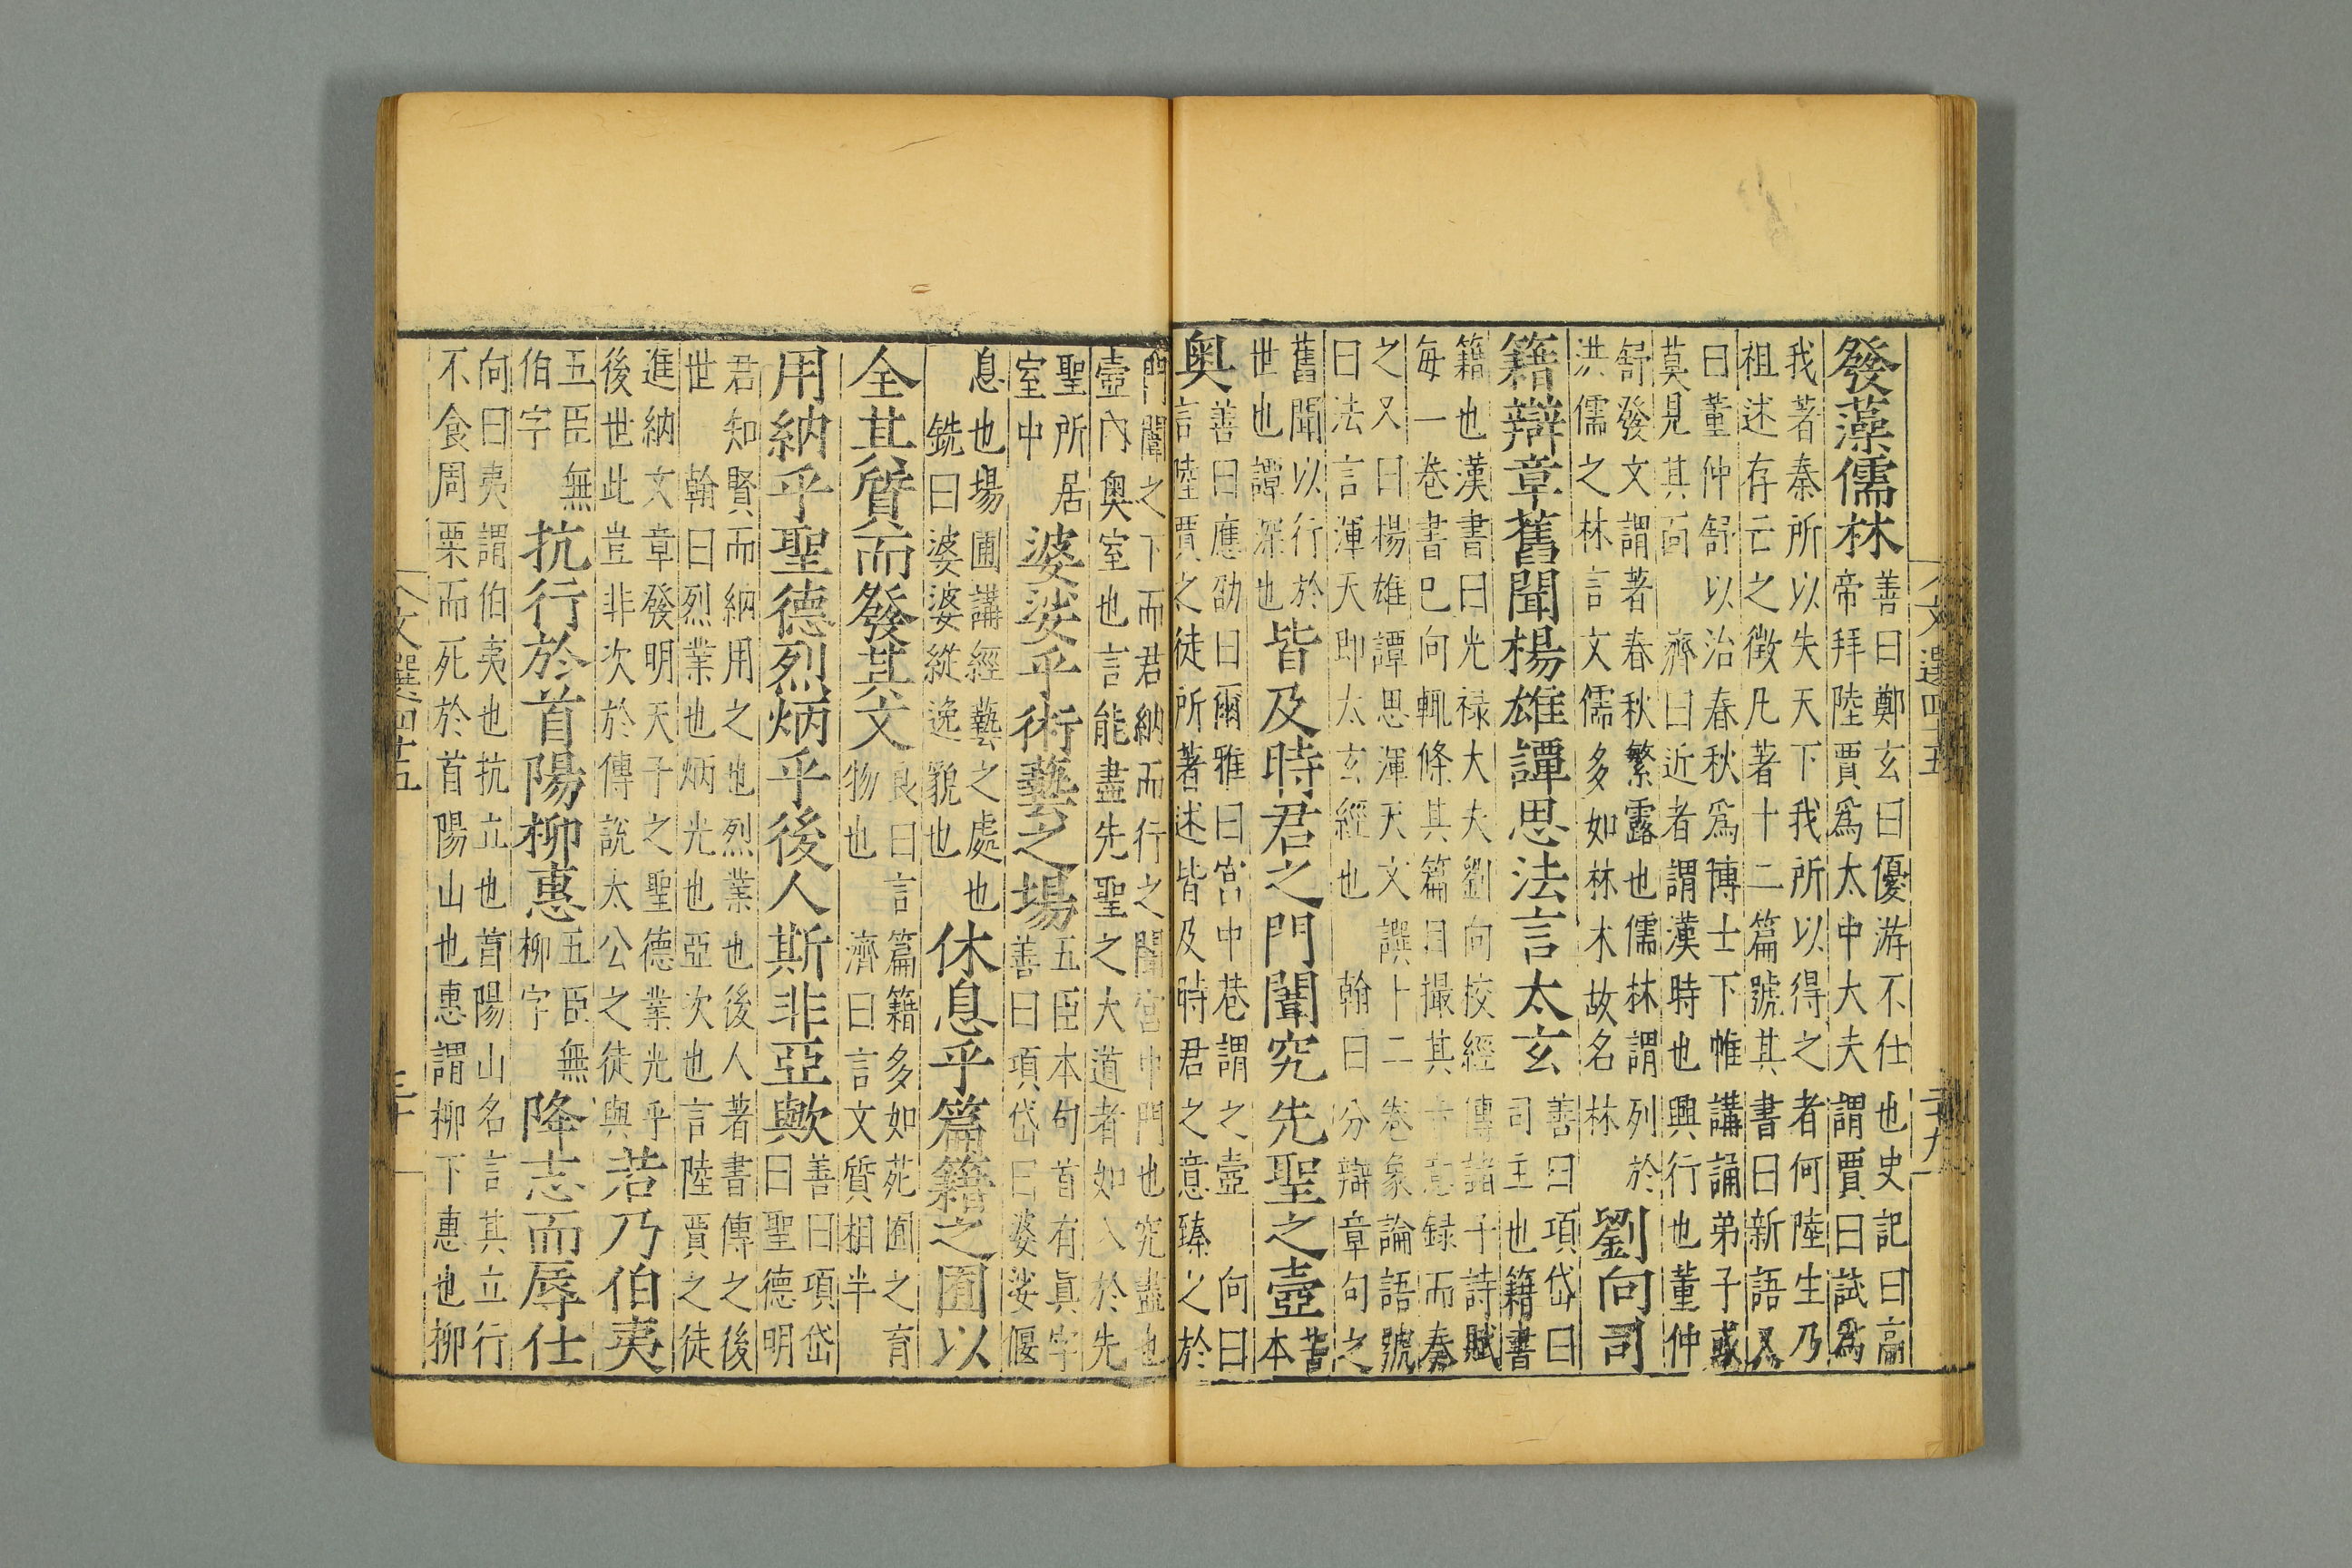 文選四十五 二十九
發藻儒林
善曰鄭玄曰優游不仕也史記曰高
帝拜陸賈爲太中大夫謂賈曰試爲
我著秦所以失天下我所以得之者何陸生乃
祖述存亡之徵凡著十二篇號其書曰新語又
曰董仲舒以治春秋爲博士下帷講誦弟子或
莫見其面 濟曰近者謂漢時也興行也董仲
舒發文謂著春秋繁露也儒林謂列於
洪儒之林言文儒多如林木故名林
劉向司
籍辯章舊聞楊雄譚思法言太玄
善曰項岱曰
司主也籍書
籍也漢書曰光禄大夫劉向校經傳諸子詩賦
每一卷書巳向輒條其篇目撮其意録而奏
之又曰揚雄譚思渾天文譔十二卷象論語號
曰法言渾天即太玄經也 翰曰分辯章句之
舊聞以行於
世也譚深也
皆及時君之門闈究先聖之壼
苦
本
奥
善曰應劭曰爾雅曰宮中巷謂之壼 向曰
言陸賈之徒所著述皆及時君之意臻之於
門闈之下而君納而行之闈宮中門也究盡也
壼内奥室也言能盡先聖之大道者如入於先
聖所居
室中
婆娑乎術藝之場
五臣本句首有眞字
善曰項岱曰婆娑偃
息也場圃講經藝之處也
銑曰婆娑縱逸貌也
休息乎篇籍之囿以
全其質而發其文
良曰言篇籍多如苑囿之育
物也 濟曰言文質相半
用納乎聖德烈炳乎後人斯非亞歟
善曰項岱
曰聖德明
君知賢而納用之也烈業也後人著書傳之後
世 翰曰烈業也炳光也亞次也言陸賈之徒
進納文章發明天子之聖德業光乎
後世此豈非次於傳說太公之徒與
若乃伯夷
五臣無
伯字
抗行於首陽柳惠
五臣無
柳字
降志而辱仕
向曰夷謂伯夷也抗立也首陽山名言其立行
不食周粟而死於首陽山也惠謂柳下惠也柳
文選四十五 三十